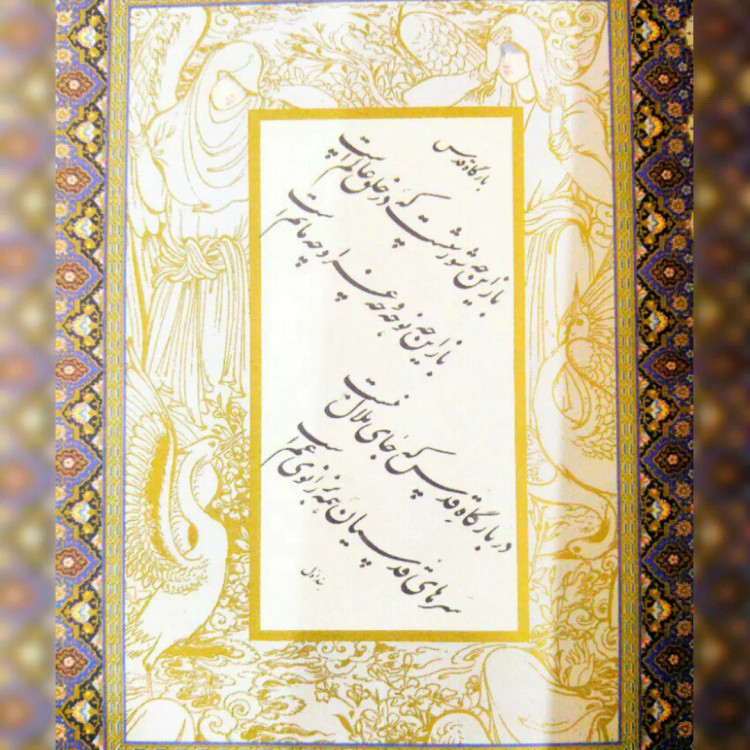 بارگاه قدس
باز این چه شورشست که در خلق عالم است
باز این چه نوحه و چه عزا و چه ماتم است
در بارگاه قدس که جای ملال نیست
سرهای قدسیان همه بر زانوی غم است